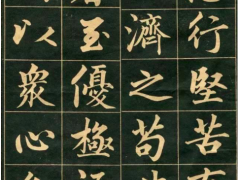 行堅苦
濟之苟
至優極
以衆心